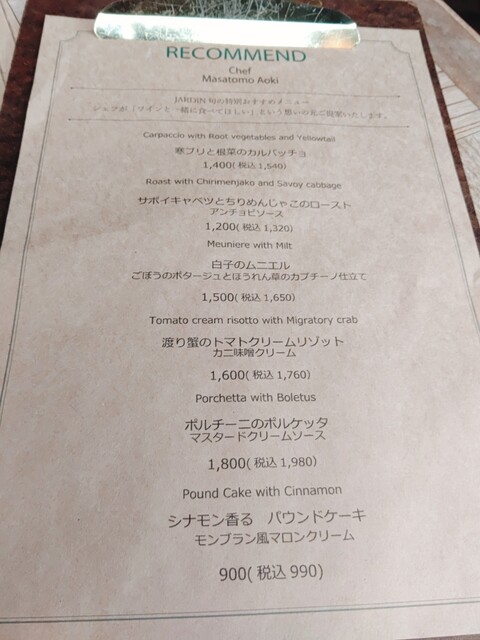 RECOMMEND
Chef
Masatomo Aoki
JARDIN 旬の特別おすすめメニュー
シェフが「ワインと一緒に食べてほしい」という想いの元ご提案いたします。
Carpaccio with Root vegetables and Yellowtail
寒ブリと根菜のカルパッチョ
1,400( 税込 1,540)
Roast with Chirimenjako and Savoy cabbage
サボイキャベツとちりめんじゃこのロースト
アンチョビソース
1,200( 税込 1,320)
Meuniere with Milt
白子のムニエル
ごぼうのポタージュとほうれん草のカプチーノ仕立て
1,500( 税込 1,650)
Tomato cream risotto with Migratory crab
渡り蟹のトマトクリームリゾット
カニ味噌クリーム
1,600( 税込 1,760)
Porchetta with Boletus
ポルチーニのポルケッタ
マスタードクリームソース
1,800( 税込 1,980)
Pound Cake with Cinnamon
シナモン香る　パウンドケーキ
モンブラン風マロンクリーム
900( 税込 990)